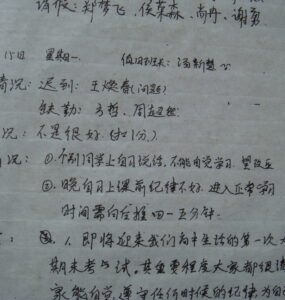 请假：郑梦飞，侯荣森，尚冉，谢勇
15日 星期一 值日班长：汤新慧
情况：迟到：王焕春（问题）
缺勤：方哲，周超然
况：不是很好（扣1分）
况：①.个别同学上自习说话，不能自觉学习.望改正
②.晚自习上课前纪律不好.进入正常学习
时间需向后推四-五分钟.
：1.即将迎来我们高中生活的第一次大
期末考试，其重要程度大家都很清
家能自觉遵守任何时候的纪律 为自己